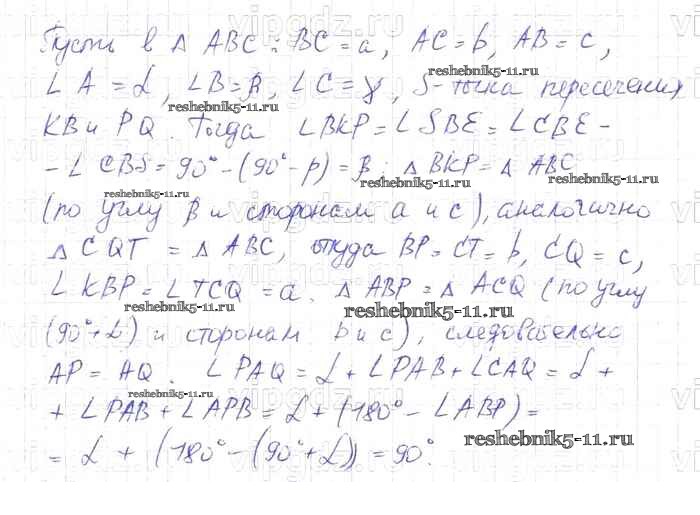 Пусть в Δ ABC : BC = a, AC = b, AB = c,
∠A = α, ∠B = β, ∠C = γ, S - точка пересечения
KB и PQ. Тогда ∠BKP = ∠SBE = ∠CBE -
- ∠CBS = 90° - (90° - β) = β. Δ BKP = Δ ABC
(по углу β и сторонам a и c), аналогично
Δ CQT = Δ ABC, откуда BP = CT = b, CQ = c,
∠KBP = ∠TCQ = α. Δ ABP = Δ ACQ (по углу
(90° + α) и сторонам b и c), следовательно
AP = AQ. ∠PAQ = α + ∠PAB + ∠CAQ = α +
+ ∠PAB + ∠APB = α + (180° - ∠ABP) =
= α + (180° - (90° + α)) = 90°.
reshebnik5-11.ru
reshebnik5-11.ru
reshebnik5-11.ru
reshebnik5-11.ru
reshebnik5-11.ru
reshebnik5-11.ru
reshebnik5-11.ru
reshebnik5-11.ru